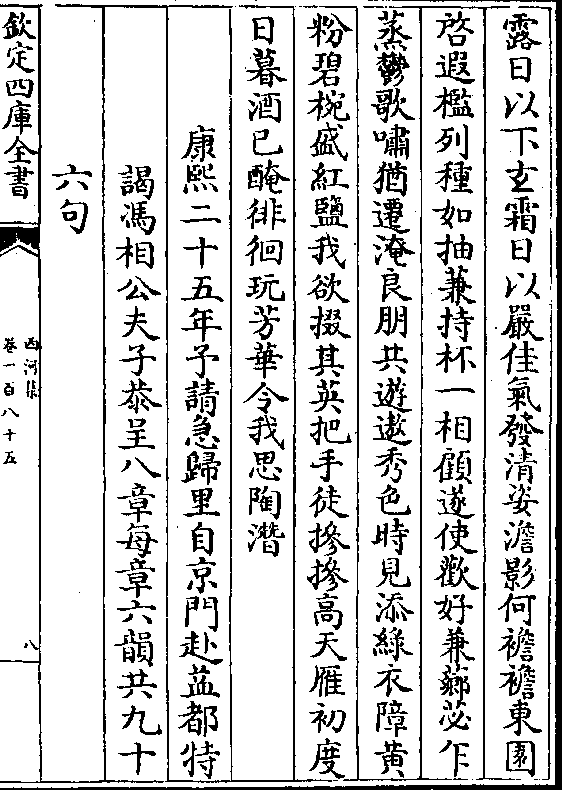 露日以下玄霜日以嚴佳氣發清姿澹影何襜襜東園
啓遐檻列種如抽蒹持杯一相顧遂使歡好兼薌苾乍
蒸鬱歌嘯猶遷淹良朋共遊遨秀色時見添綠衣障黄
粉碧椀盛紅鹽我欲掇其英把手徒摻摻高天雁初度
日暮酒已醃徘徊玩芳華令我思陶潛
康熙二十五年予請急歸里自京門赴益都特
謁馮相公夫子恭呈八章每章六韻共九十
六句
欽定四庫全書
西河集
卷一百八十五
八